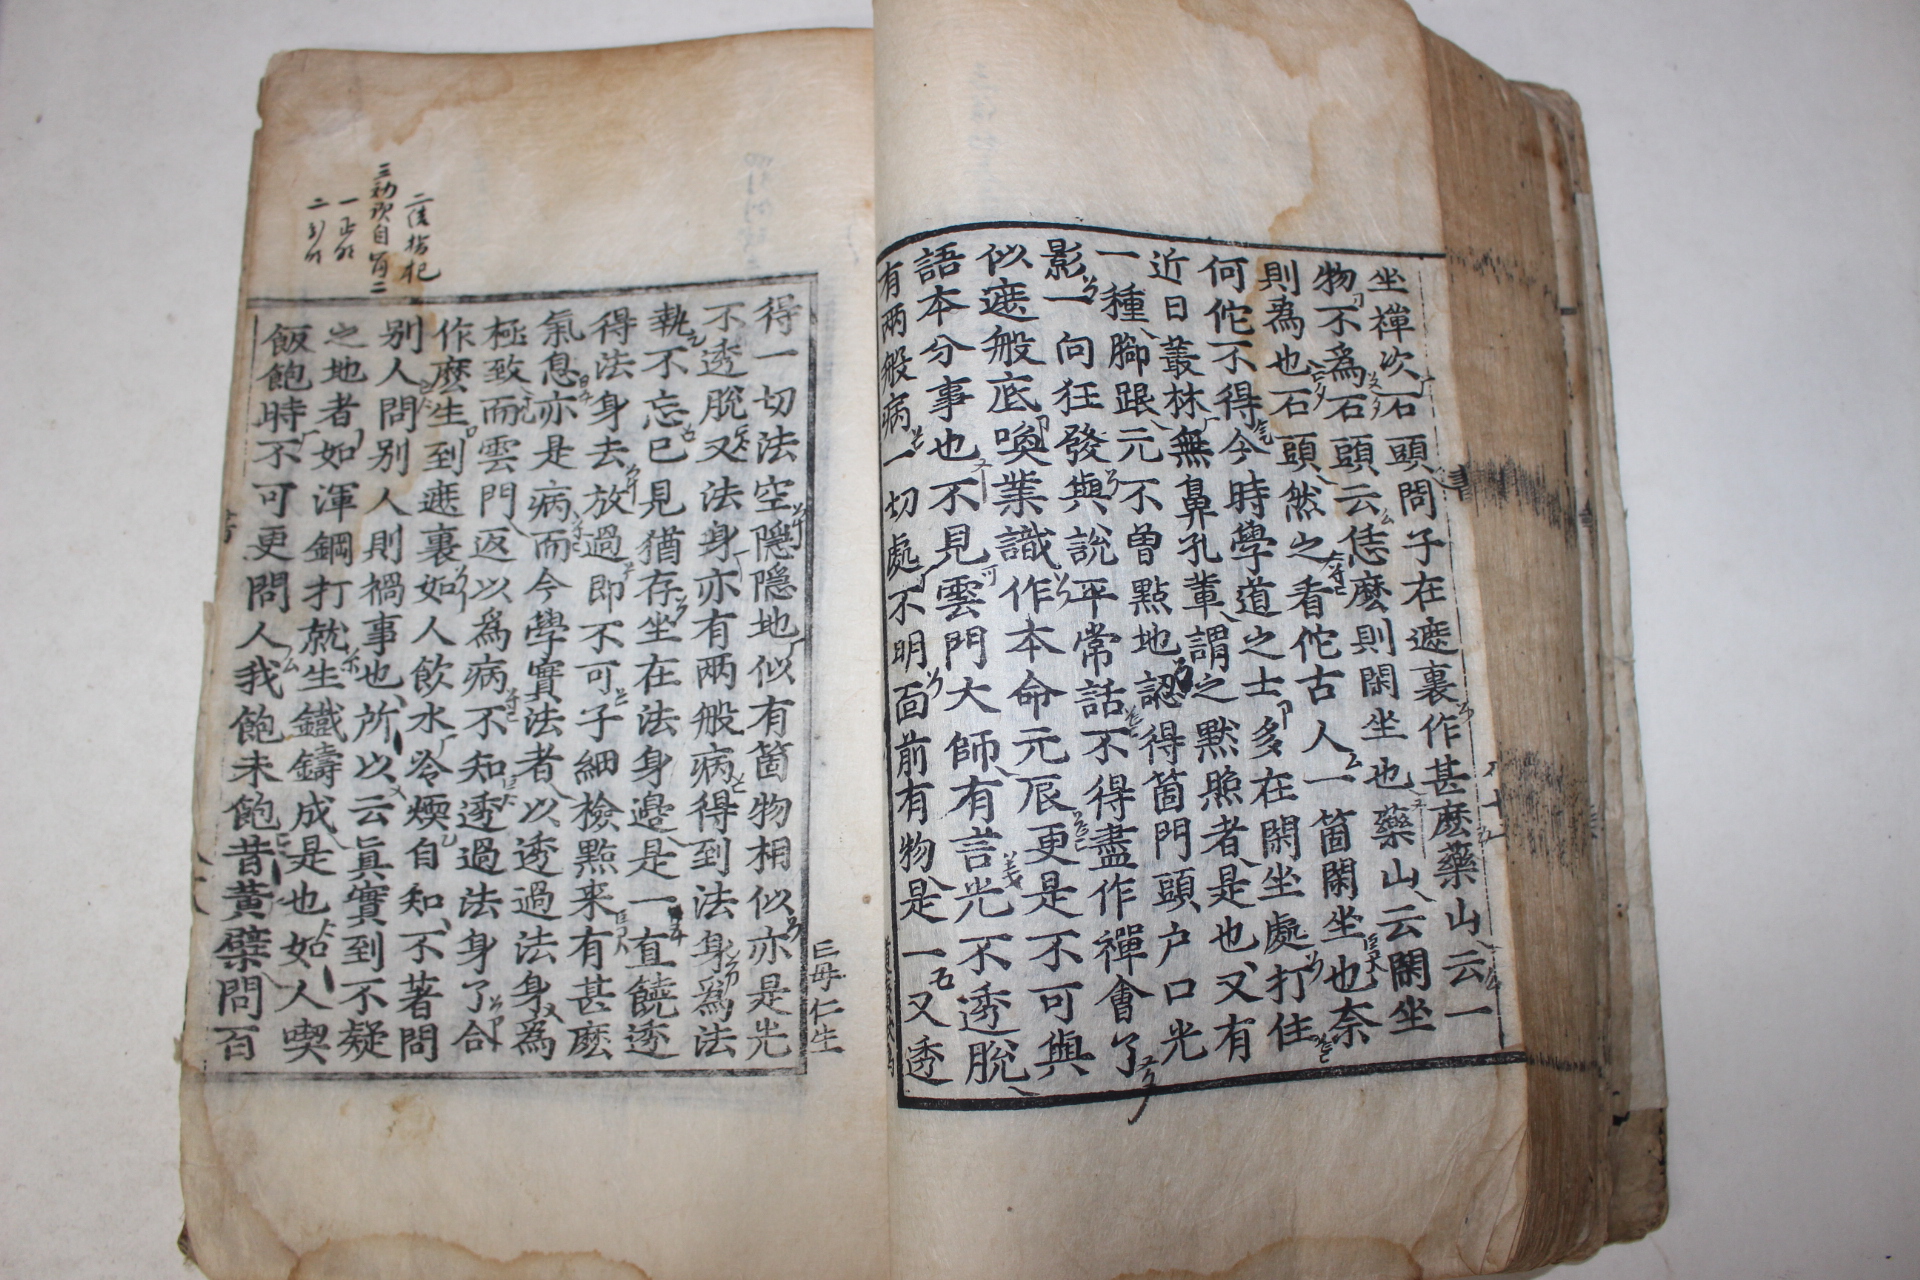 坐禪次石頭問子在遮裏作甚麽藥山云一
物不為石頭云恁麽則閑坐也藥山云閑坐
則為也石頭然之看佗古人一箇閑坐也奈
何佗不得今時學道之士多在閑坐處打住
近日叢林無鼻孔輩謂之黙照者是也又有
一種腳跟元不曾點地認得箇門頭户口光
影一向狂發與說平常話不得盡作禪會了
似遮般底喚業識作本命元辰更是不可與
語本分事也不見雲門大師有言光不透脫
有兩般病一切處不明面前有物是一又透
得一切法空隱隱地似有箇物相似亦是光
不透脫又法身亦有兩般病得到法身為法
執不忘已見猶存坐在法身邊是一直饒透
得法身去放過即不可子細檢點来有甚麽
氣息亦是病而今學實法者以透過法身為
極致而雲門返以為病不知透過法身了合
作麽生到遮裏如人飲水冷煖自知不著問
别人問别人則禍事也所以云眞實到不疑
之地者如渾鋼打就生鐵鑄成是也如人喫
飯飽時不可更問人我飽未飽昔黄檗問百
巨母仁生